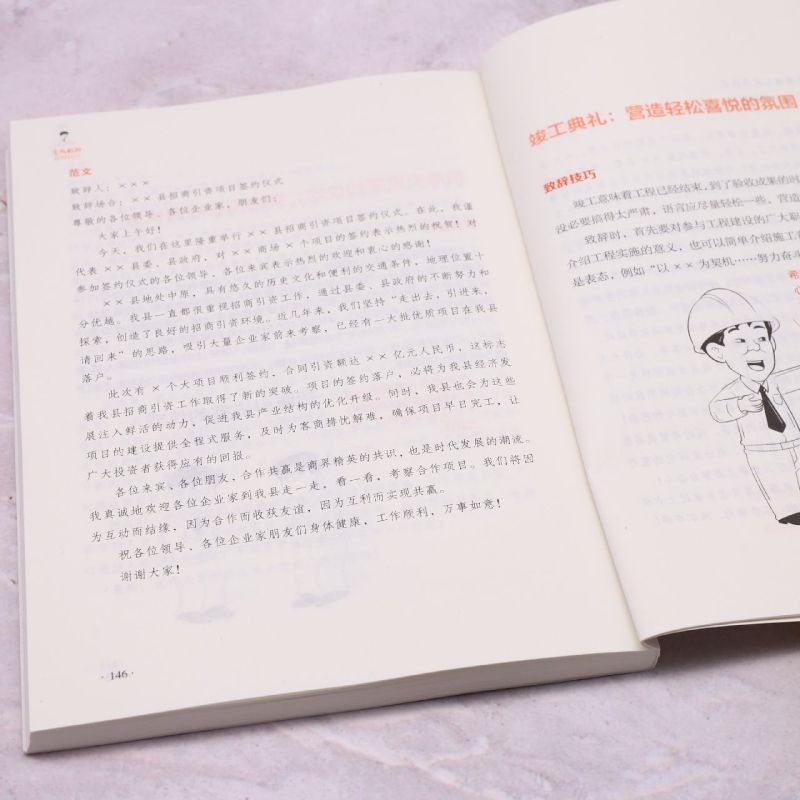 范文
致辞人：×××
致辞场合：××县招商引资项目签约仪式
尊敬的各位领导、各位企业家，朋友们：
大家上午好！
今天，我们在这里隆重举行××县招商引资项目签约仪式。在此，我谨
代表××县委、县政府，对××商场×个项目的签约表示热烈的祝贺！对
参加签约仪式的各位领导、各位来宾表示热烈的欢迎和衷心的感谢！
××县地处中原，具有悠久的历史文化和便利的交通条件，地理位置十
分优越。我县一直都很重视招商引资工作，通过县委、县政府的不断努力和
探索，创造了良好的招商引资环境。近几年来，我们坚持“走出去，引进来，
请回来”的思路，吸引大量企业家前来考察，已经有一大批优质项目在我县
落户。
此次有×个大项目顺利签约，合同引资额达××亿元人民币，这标志
着我县招商引资工作取得了新的突破。项目的签约落户，必将为我县经济发
展注入鲜活的动力，促进我县产业结构的优化升级。同时，我县也会为这些
项目的建设提供全程式服务，及时为客商排忧解难，确保项目早日完工，让
广大投资者获得应有的回报。
各位来宾、各位朋友，合作共赢是商界精英的共识，也是时代发展的潮流。
我真诚地欢迎各位企业家到我县走一走，看一看，考察合作项目。我们将因
为互动而结缘，因为合作而收获友谊，因为互利而实现共赢。
祝各位领导、各位企业家朋友们身体健康，工作顺利，万事如意！
谢谢大家！
·146·
竣工典礼：营造轻松喜悦的氛围
致辞技巧
竣工意味着工程已经结束，到了验收成果的时
没必要搞得太严肃，语言应尽量轻松一些，营造
致辞时，首先要对参与工程建设的广大职
介绍工程实施的意义，也可以简单介绍施工
是表态，例如“以××为契机……努力奋斗
希